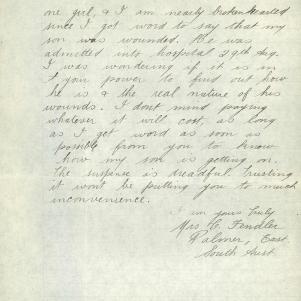 one girl, & I am nearly broken hearted
since I got word to say that my
son was wounded. He was
admitted into hospital 29th Aug.
I was wondering if it is in
your power to find out how
he is & the real nature of his
wounds. I dont mind paying
whatever it will cost, as long
as I get word as soon is
possible from you to know
how my son is getting on.
The suspense is dreadful trusting
it wont be putting you to much
inconvenience.
I am yours truly
Mrs C. Fendler
Palmer, East
South Aust